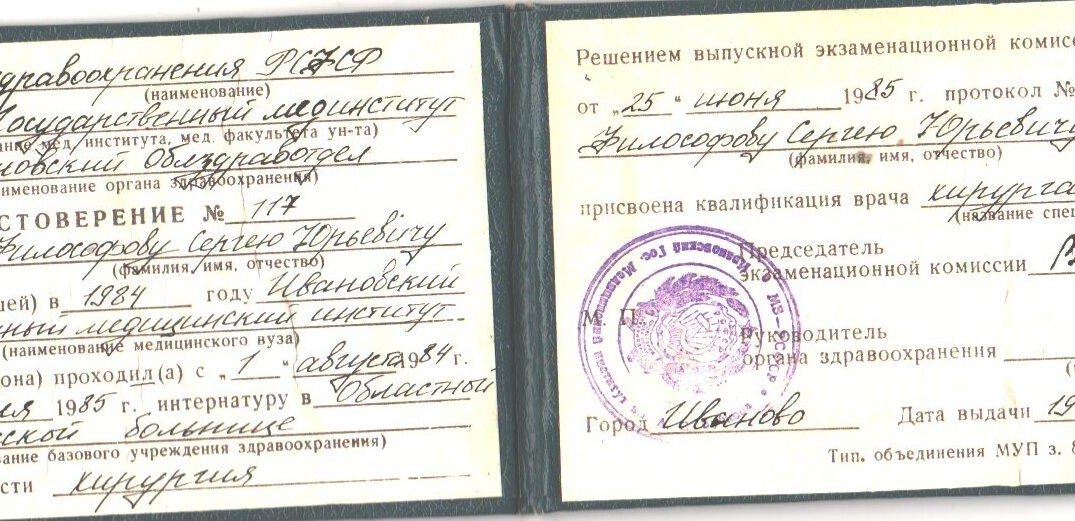 дравоохранения РСФСР
(наименование)
Государственный мединститут
ание мед. института, мед. факультета ун-та)
новский Облздравотдел
именование органа здравоохранения)
СТОВЕРЕНИЕ № 117
Философову Сергею Юрьевичу
(фамилия, имя, отчество)
шей) в 1984 году Ивановский
ный медицинский институт
(наименование медицинского вуза)
она) проходил(а) с „1" августа 1984 г.
ня 1985 г. интернатуру в Областной
ской больнице
ование базового учреждения здравоохранения)
сти хирургия
Решением выпускной экзаменационной комисс
от „25" июня 1985 г. протокол №
Философову Сергею Юрьевичу
(фамилия, имя, отчество)
присвоена квалификация врача хирурга
(название спец
Председатель
экзаменационной комиссии
М. П.
Руководитель
органа здравоохранения
Город Иваново Дата выдачи 19
Тип. объединения МУП з. 8